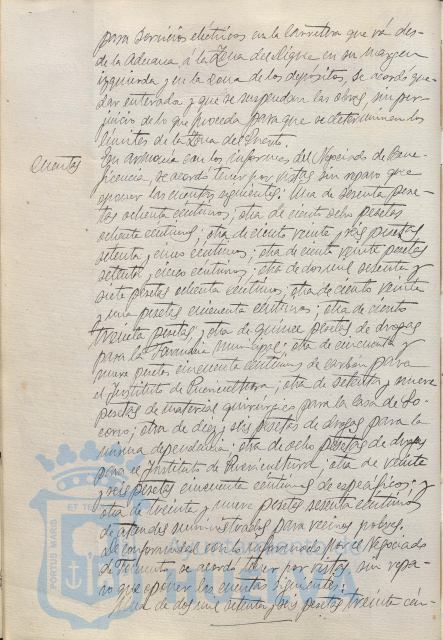 para servicios eléctricos en la carretera que vá des-
de la Aduana á la Zona del Dique en su margen
izquierda y en la zona de los depósitos, se acordó que-
dar enterada y que se suspendan las obras, sin per-
juicio de lo que proceda para que se determinen los
límites de la Zona del Puerto.
Cuentas
En armonía con los informes del Negociado de Bene-
ficencia, se acordó tener por vistas sin reparo que
oponer las cuentas siguientes: Una de sesenta pese-
tas ochenta céntimos; otra de ciento ocho pesetas
ochenta céntimos; otra de ciento veinte y seis pesetas
setenta y cinco céntimos; otra de ciento veinte pesetas
setenta y cinco céntimos; otra de dos mil sesenta y
siete pesetas ochenta céntimos; otra de ciento veinte
y una pesetas cincuenta céntimos; otra de ciento
treinta pesetas; otra de quince pesetas de drogas
para la Farmacia municipal; otra de cincuenta y
nueve pesetas cincuenta céntimos de carbón para
el Instituto de Puericultura; otra de setenta y nueve
pesetas de material quirúrgico para la Casa de So-
corro; otra de diez y seis pesetas de drogas para la
misma dependencia; otra de ocho pesetas de drogas
para el Instituto de Puericultura; otra de veinte
y seis pesetas cincuenta céntimos de específicos; y
otra de treinta y nueve pesetas sesenta céntimos
de ataudes suministrados para vecinos pobres.
De conformidad con lo informado por el Negociado
de Fomento, se acordó tener por vistas sin repa-
ro que oponer las cuentas siguientes:
Una de dos mil setenta y seis pesetas treinta cén-
PORTUS MARIS ET TE
Ayuntamiento de
HUELVA